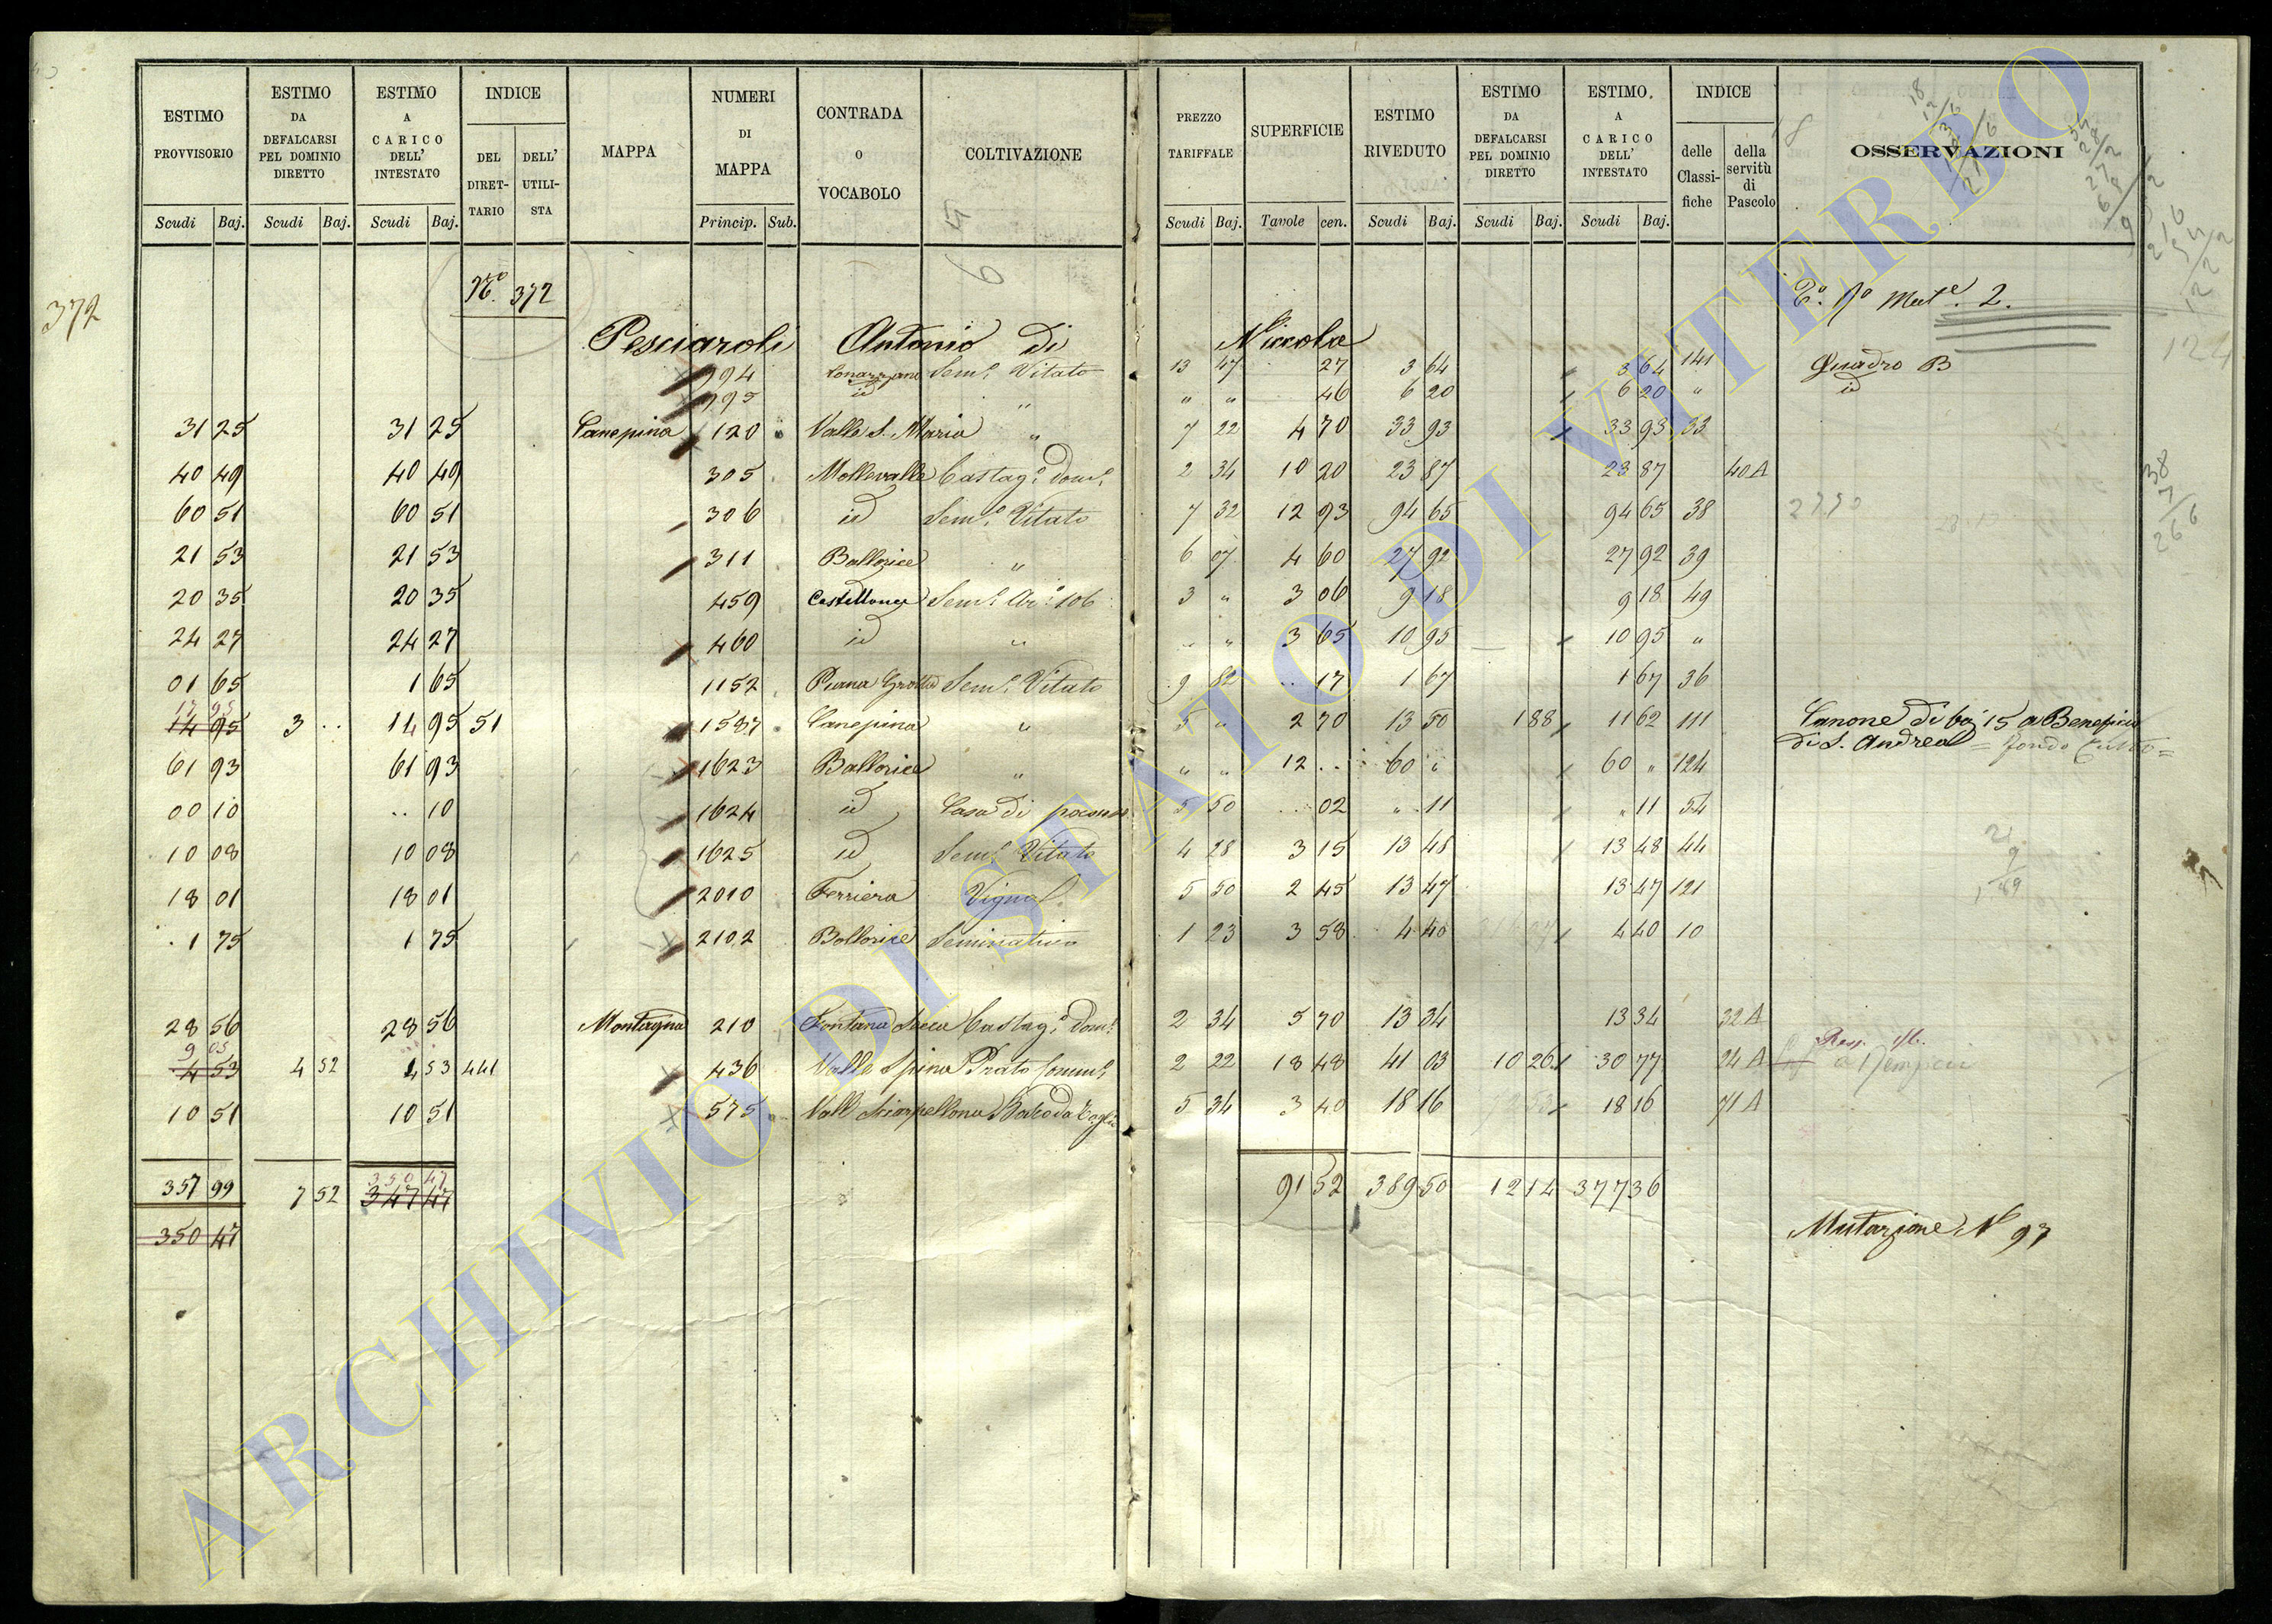 ESTIMO PROVVISORIO Scudi Baj.
ESTIMO DA DEFALCARSI PEL DOMINIO DIRETTO Scudi Baj.
ESTIMO A CARICO DELL' INTESTATO Scudi Baj.
INDICE DEL DIRETTARIO DELL' UTILISTA
MAPPA
NUMERI DI MAPPA Princip. Sub.
CONTRADA O VOCABOLO
COLTIVAZIONE
PREZZO TARIFFALE Scudi Baj.
SUPERFICIE Tavole cen.
ESTIMO RIVEDUTO Scudi Baj.
ESTIMO DA DEFALCARSI PEL DOMINIO DIRETTO Scudi Baj.
ESTIMO A CARICO DELL' INTESTATO Scudi Baj.
INDICE delle Classifiche della servitù di Pascolo
OSSERVAZIONI
372
No. 372
Pesciaroli Antonio di Niccola
994 Sem.o Vitato 13 47 27 3 64 3 64 141 Quadro B
995 id " " " 46 6 20 6 20 " id
31 25 31 25 Canepina 120 Valle S. Maria " 7 22 4 70 33 93 33 93 33
40 49 40 49 305 Mollevalle Castag.o dom.o 2 34 10 20 23 87 23 87 40 A
60 51 60 51 306 id Sem.o Vitato 7 32 12 93 94 65 94 65 38
21 53 21 53 311 Ballorice " 6 07 4 60 27 92 27 92 39
20 35 20 35 459 Castellone Sem.o Ar.o 106 3 " 3 06 9 18 9 18 49
24 27 24 27 460 id " " " 3 65 10 95 10 95 "
01 65 1 65 1152 Piana Grotta Sem.o Vitato 9 82 .. 17 1 67 1 67 36
17 95
14 95 3 .. 14 95 51 1587 Canepina " 5 " 2 70 13 50 1 88 11 62 111 Canone di baj 15 a Beneficio
di S. Andrea = fondo tutto =
61 93 61 93 1623 Ballorice " " " 12 .. 60 " 60 " 124
00 10 .. 10 1624 id Casa di 5 50 .. 02 " 11 " 11 54
10 08 10 08 1625 id Sem.o Vitato 4 28 3 15 13 48 13 48 44
18 01 18 01 2010 Ferriera Vigna 5 50 2 45 13 47 13 47 121
1 75 1 75 2102 Ballorice Seminativo 1 23 3 58 4 40 4 40 10
28 56 28 56 Montagna 210 Fontana Secca Castag.o dom.o 2 34 5 70 13 34 13 34 32 A
9 05
4 53 4 52 4 53 441 436 Valle Spina Prato 2 22 18 48 41 03 10 26 30 77 24 A
10 51 10 51 575 Bosco da taglio 5 34 3 40 18 16 18 16 71 A
350 47
357 99 7 52 347 47 91 52 389 50 12 14 377 36
350 47
Mutazione N 97
ARCHIVIO DI STATO DI VITERBO